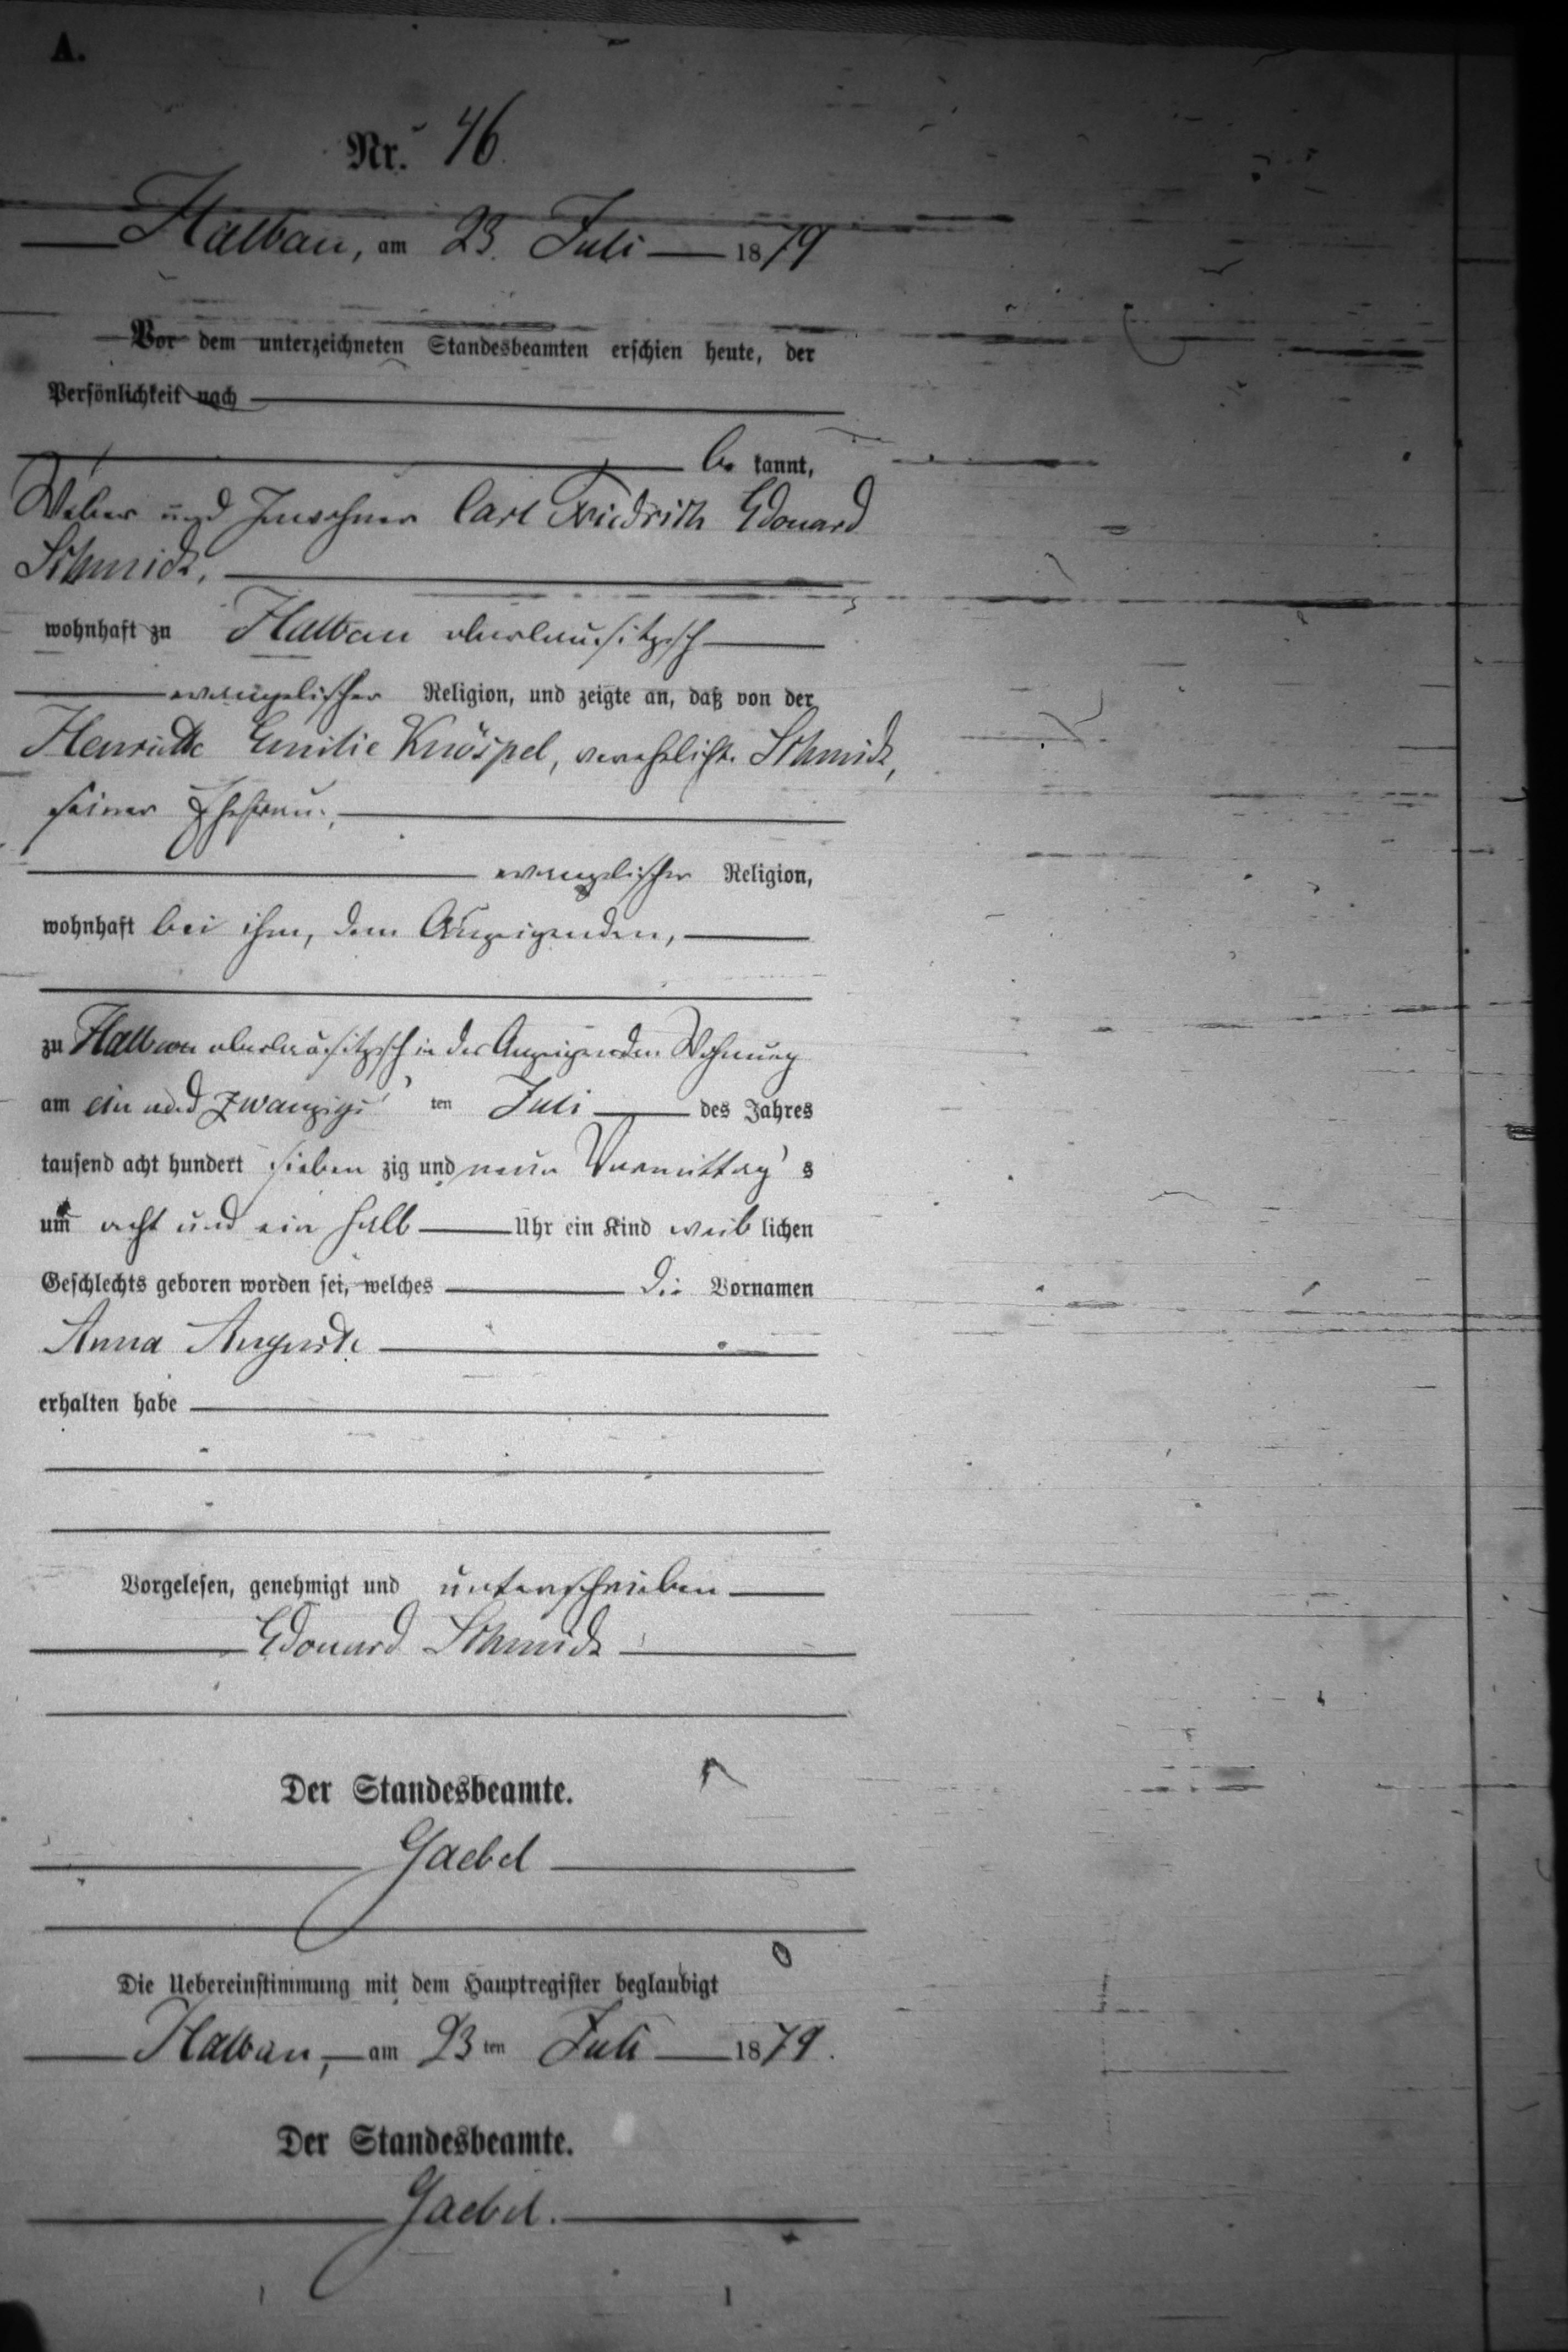 A.
Nr. 46.
Halbau, am 23. Juli 1879
Vor dem unterzeichneten Standesbeamten erschien heute, der
Persönlichkeit nach
be kannt,
Weber und Inwohner Carl Friedrich Edouard
Schmidt,
wohnhaft zu Halbau oberlausitzisch
evangelischer Religion, und zeigte an, daß von der
Henriette Emilie Knöspel, verehelichte Schmidt,
seiner Ehefrau,
evangelischer Religion,
wohnhaft bei ihm, dem Anzeigenden,
zu Halbau oberlausitzisch in des Anzeigenden Wohnung
am ein und zwanzigs ten Juli des Jahres
tausend acht hundert sieben zig und neun Vormittag s
um acht und ein halb Uhr ein Kind weib lichen
Geschlechts geboren worden sei, welches die Vornamen
Anna Auguste
erhalten habe
Vorgelesen, genehmigt und unterschrieben
Edouard Schmidt
Der Standesbeamte.
Gaebel
Die Uebereinstimmung mit dem Hauptregister beglaubigt
Halbau, am 23 ten Juli 1879.
Der Standesbeamte.
Gaebel.